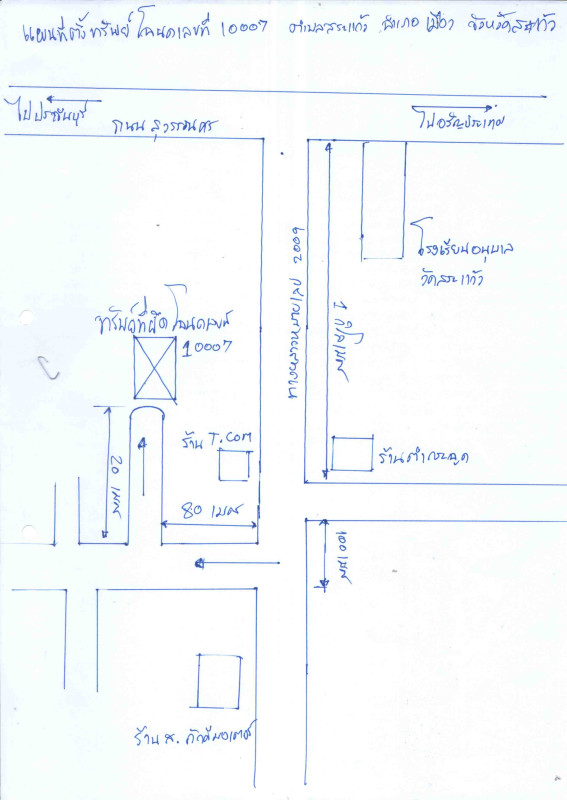 แผนที่ตั้งทรัพย์ โฉนดเลขที่ 10007 ตำบลสระแก้ว อำเภอ เมือง จังหวัดสระแก้ว
ไปปราจีนบุรี
ถนน สุวรรณศร
ไปอรัญประเทศ
โรงเรียนอนุบาล
วัดสระแก้ว
ทางหลวงหมายเลข 2009
1 กิโลเมตร
ทรัพย์ที่ยึด โฉนดเลขที่
10007
ร้าน T.COM
ร้านตำกระจุด
20 เมตร
80 เมตร
100 เมตร
ร้าน ส.